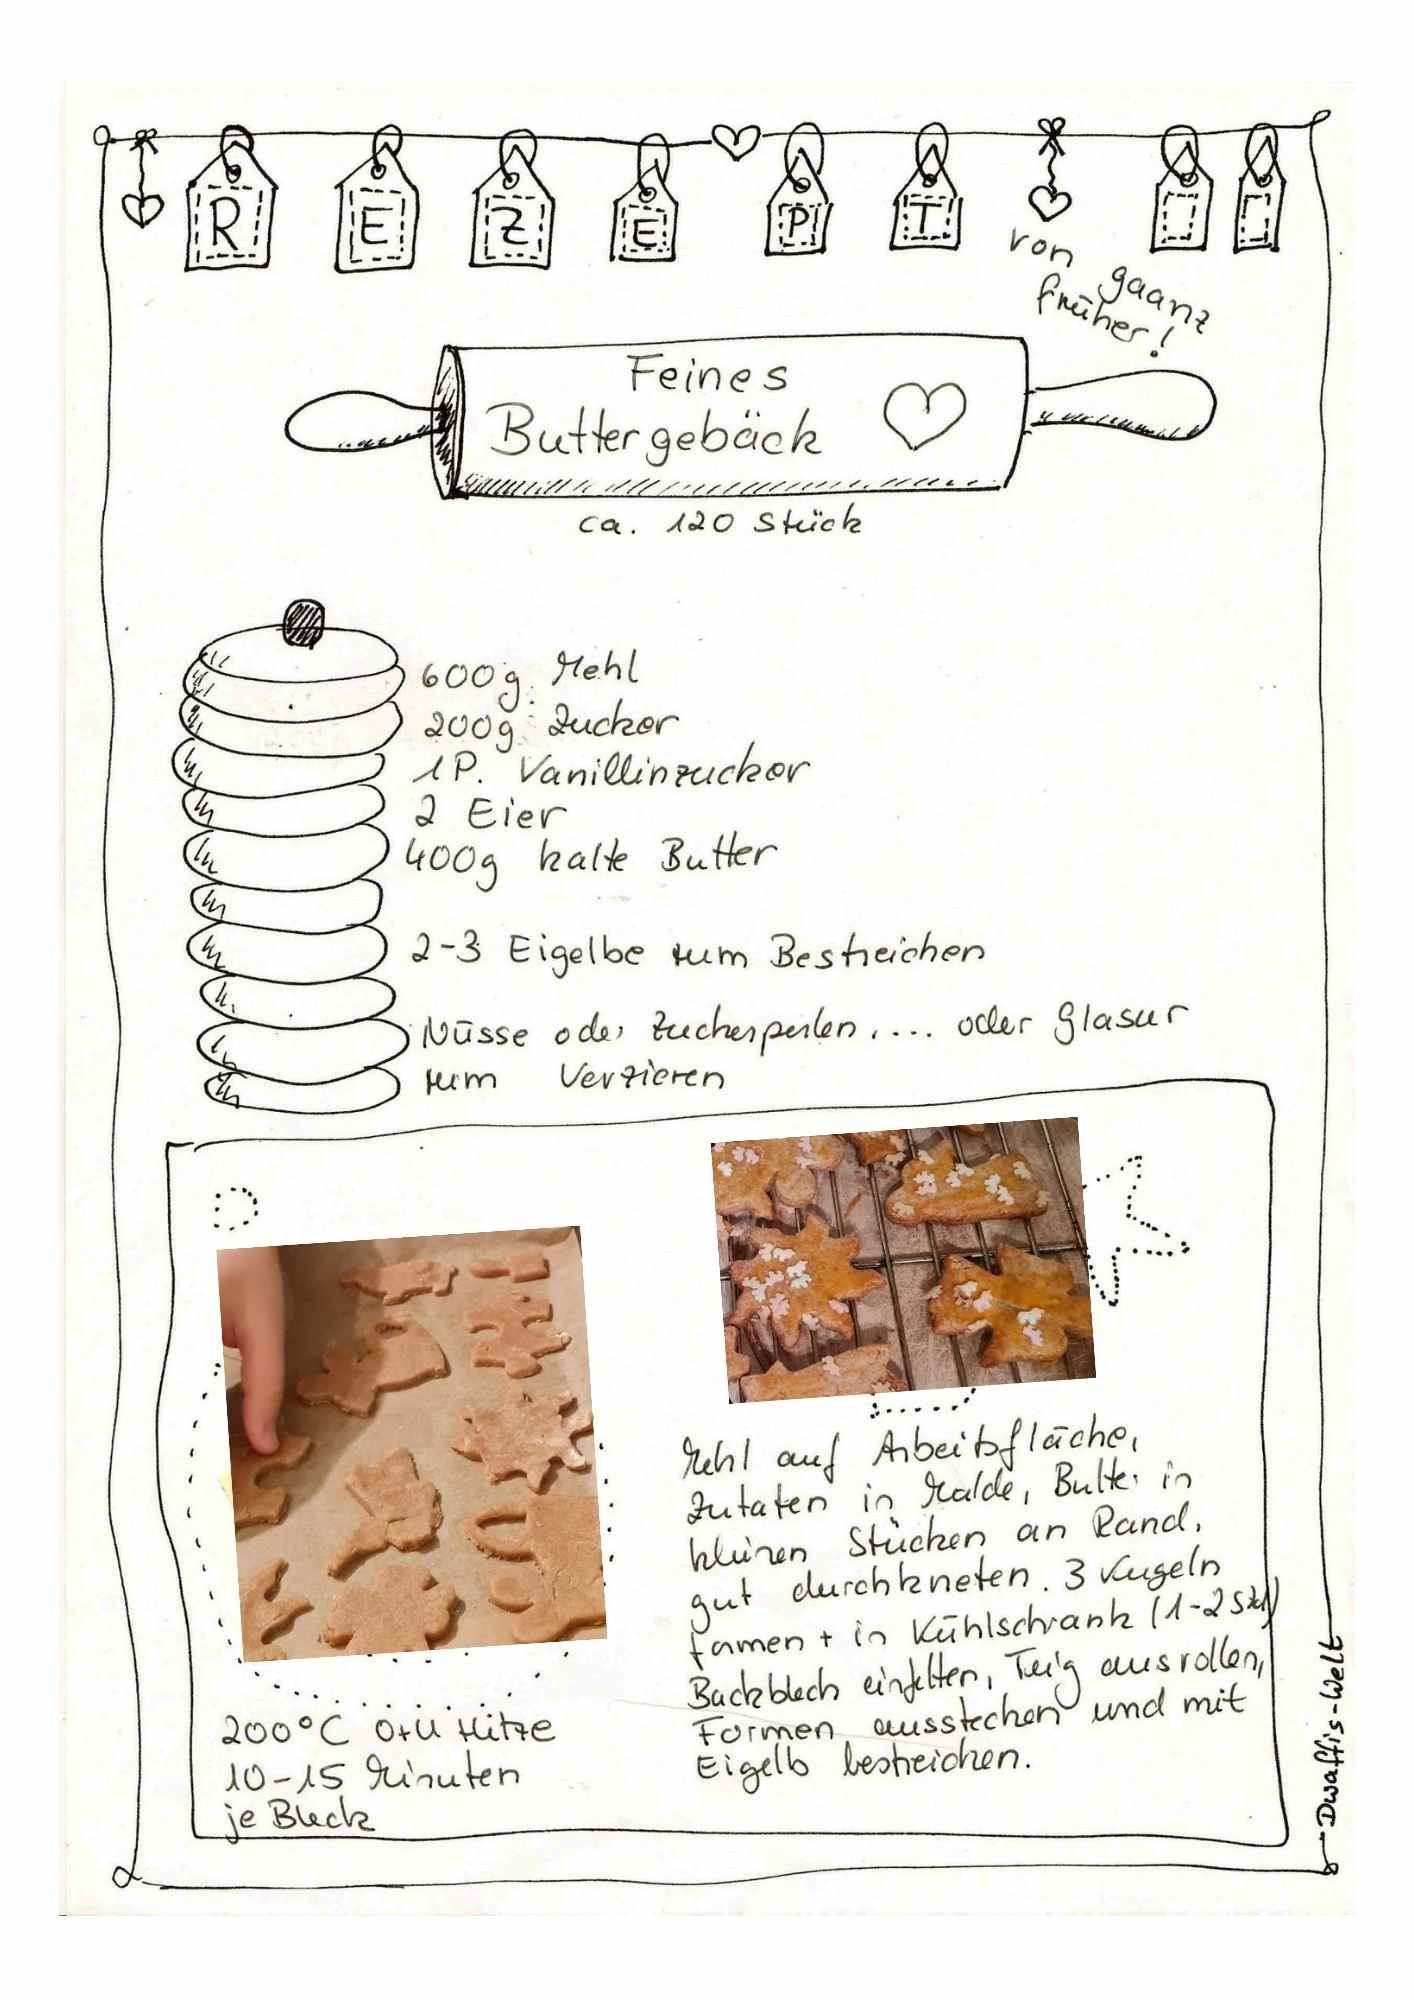 REZEPT
von gaanz
früher!
Feines
Buttergebäck
ca. 120 Stück
600g Mehl
200g Zucker
1P. Vanillinzucker
2 Eier
400g kalte Butter
2-3 Eigelbe zum Bestreichen
Nüsse oder Zuckerperlen.... oder Glasur
zum Verzieren
Mehl auf Arbeitsfläche,
Zutaten in Mulde, Butter in
kleinen Stücken an Rand,
gut durchkneten. 3 Kugeln
formen + in Kühlschrank (1-2 Std)
Backblech einfetten, Teig ausrollen,
Formen ausstechen und mit
Eigelb bestreichen.
200°C O+U Hitze
10-15 Minuten
je Blech
Dwaffis-Welt